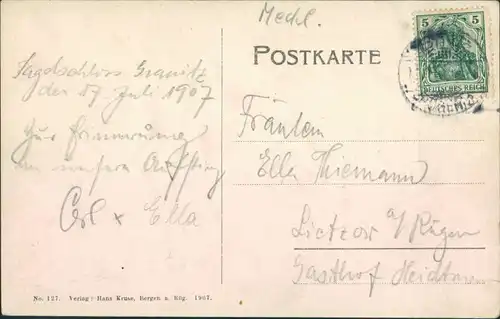 Meckl.
POSTKARTE
5
DEUTSCHES REICH
Jagdschloss Granitz
den 17 Juli 1907
Zur Erinnerung
an unsern Ausflug
Carl x Ella
Fräulein
Ella Thiemann
Lietzow a/Rügen
Gasthof
No. 127. Verlag: Hans Kruse, Bergen a. Rüg. 1907.